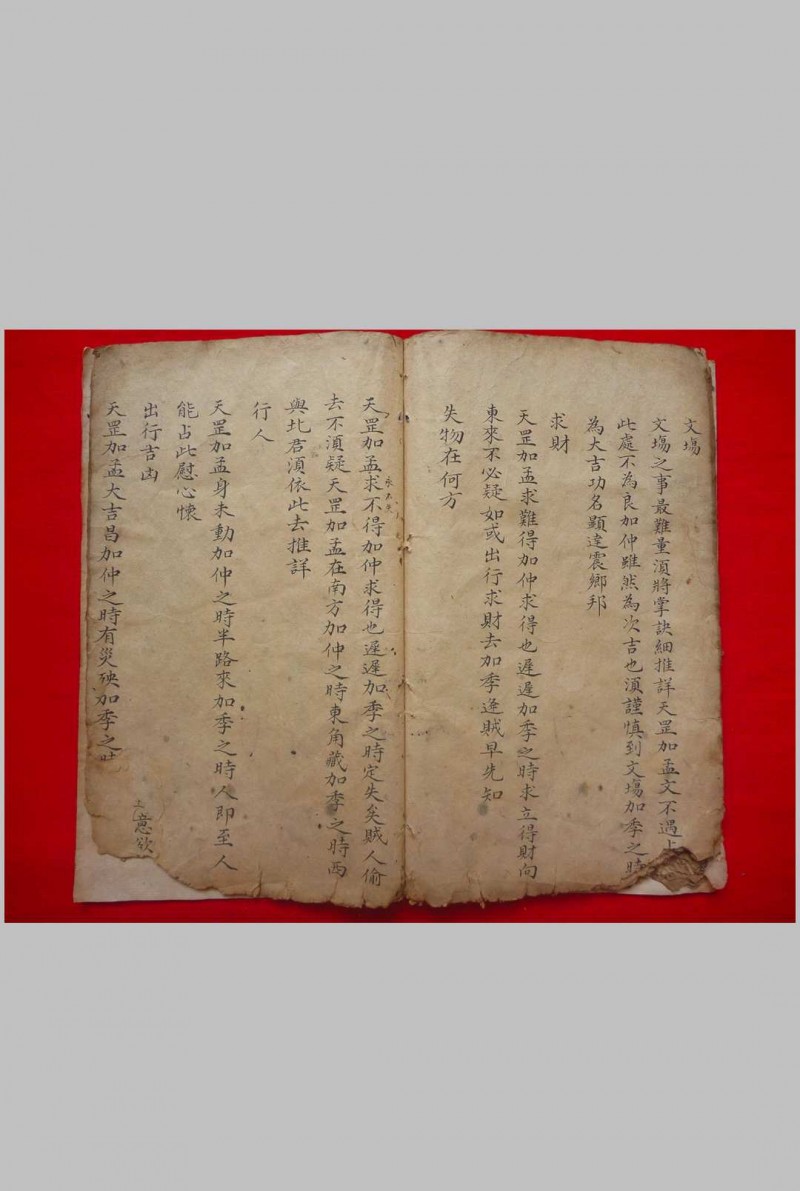 文塲
文塲之事最難量須將掌訣細推詳天罡加孟文不遇
此處不為良加仲雖然為次吉也須謹慎到文塲加季之時
為大吉功名顯達震鄉邦
求財
天罡加孟求難得加仲求得也遲遲加季之時求立得財向
東來不必疑如或出行求財去加季逢賊早先知
失物在何方
天罡加孟求不得加仲求得也遲遲加季之時定失矣賊人偷
去不須疑天罡加孟在南方加仲之時東角藏加季之時西
與北君須依此去推詳
行人
天罡加孟身未動加仲之時半路來加季之時人即至人
意欲
能占此慰心懷
出行吉凶
天罡加孟大吉昌加仲之時有災殃加季之時